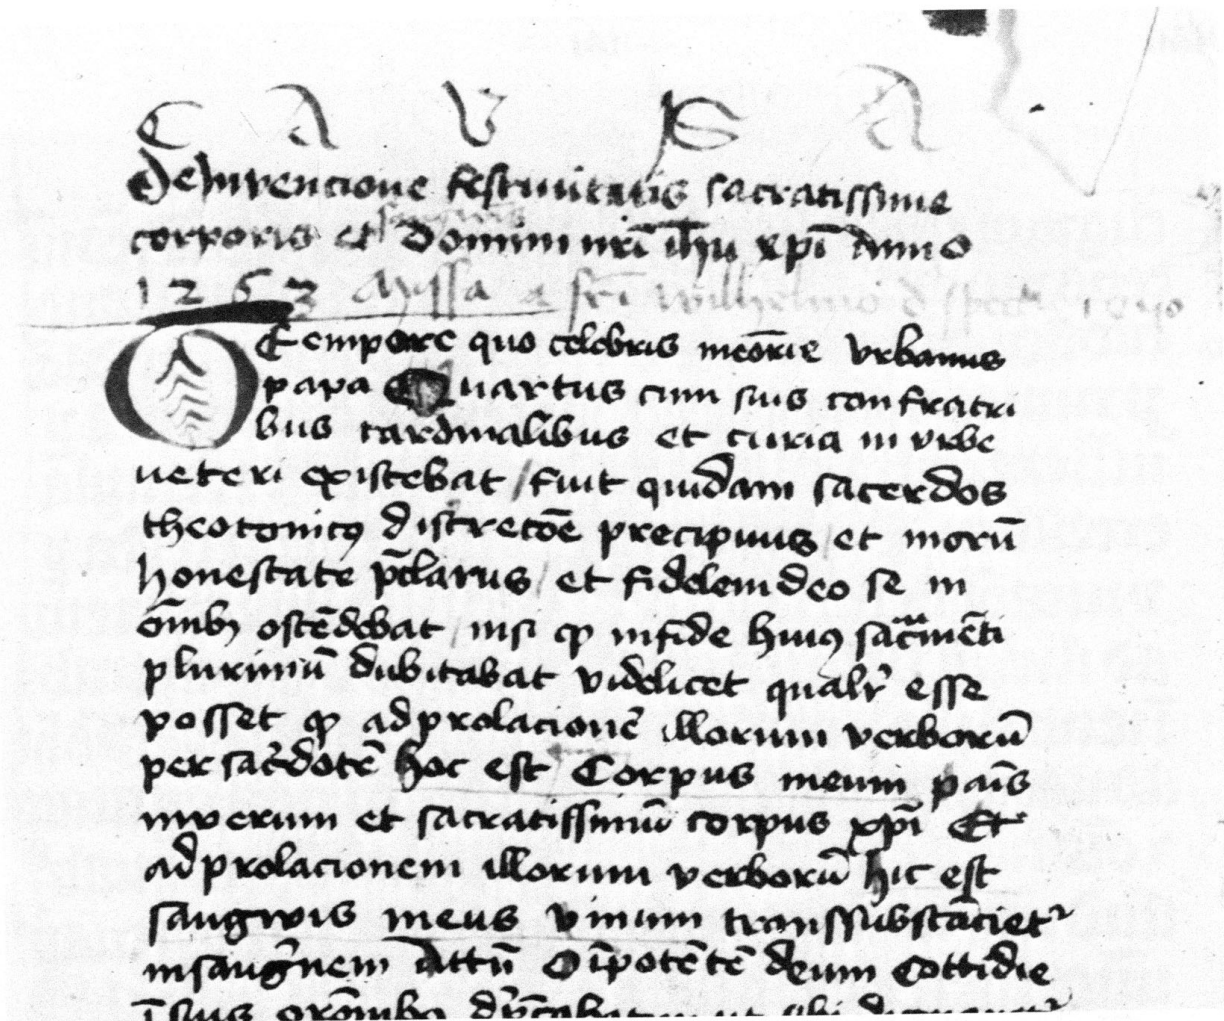 C A V S A
De Invencione festiuitatis sacratissime
sangwis
corporis et Domini nrī ihū xpī Anno
1263 Missa a frī wilhelmo d
O Tempore quo celebris meōrie vrbanus
papa Quartus cum suis confratri
bus cardinalibus et curia in vrbe
ueteri existebat / fuit quidam sacerdos
theotonicꝰ discretōe precipuus / et morū
honestate p̄clarus / et fidelem deo se in
ōmibꝫ ostēdebat / nisi ꝙ in fide huiꝰ sac̄mēti
plurimū dubitabat videlicet qualr̄ esse
posset ꝙ ad prolacionē illorum verborū
per sac̄dotē hoc est Corpus meum panis
in verum et sacratissimū corpus xpī Et
ad prolacionem illorum verborū hic est
sangwis meus vinum transsubstāciet᷑
in saugwnem Attn̄ Oīpotētē deum Cottidie
ī suis orōnibꝫ dp̄cabatur ut sibi